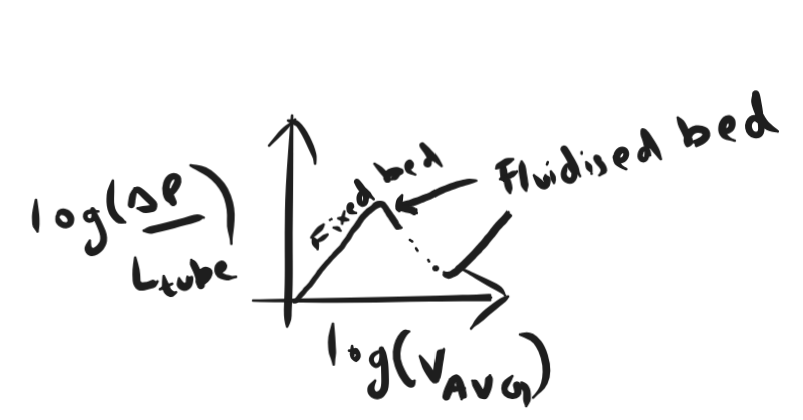 log(ΔP/L_tube)
Fixed bed
Fluidised bed
log(V_AVG)